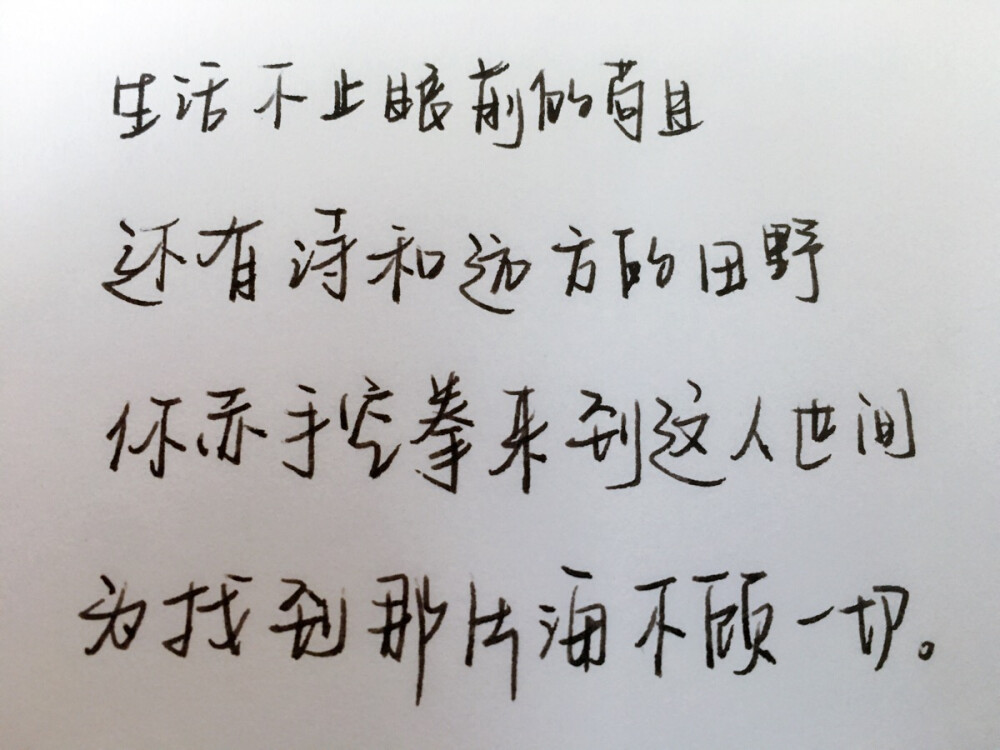 生活不止眼前的苟且
还有诗和远方的田野
你赤手空拳来到这人世间
为找到那片海不顾一切。